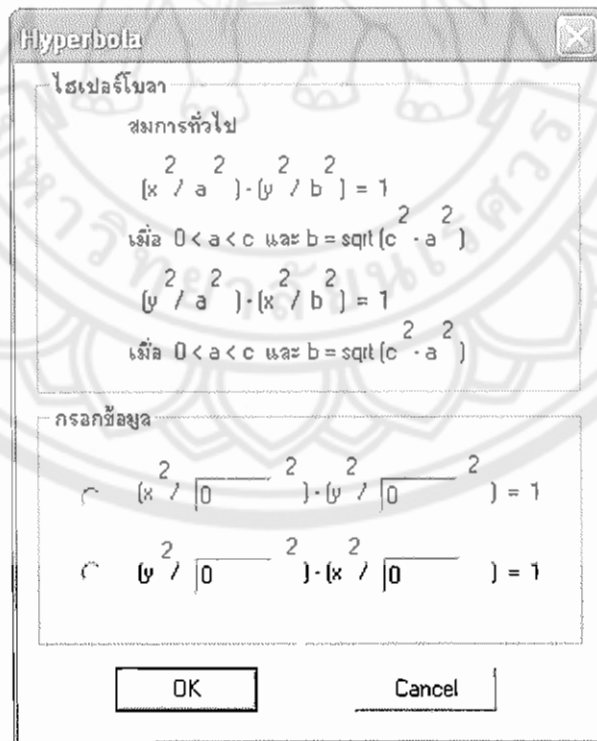 Hyperbola
ไฮเปอร์โบลา
สมการทั่วไป
(x² / a²)-(y² / b²) = 1
เมื่อ 0 < a < c และ b = sqrt(c² - a²)
(y² / a²)-(x² / b²) = 1
เมื่อ 0 < a < c และ b = sqrt(c² - a²)
กรอกข้อมูล
(x² / 0 ²)-(y² / 0 ²) = 1
(y² / 0 ²)-(x² / 0 ) = 1
OK Cancel
มหาวิทยาลัยนเรศวร